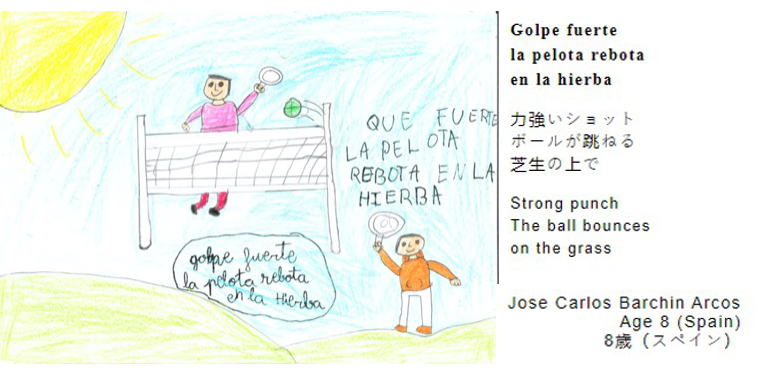 QUE FUERTE
LA PELOTA
REBOTA EN LA
HIERBA
golpe fuerte
la pelota rebota
en la Hierba
Golpe fuerte
la pelota rebota
en la hierba
力強いショット
ボールが跳ねる
芝生の上で
Strong punch
The ball bounces
on the grass
Jose Carlos Barchin Arcos
Age 8 (Spain)
8歳 (スペイン)